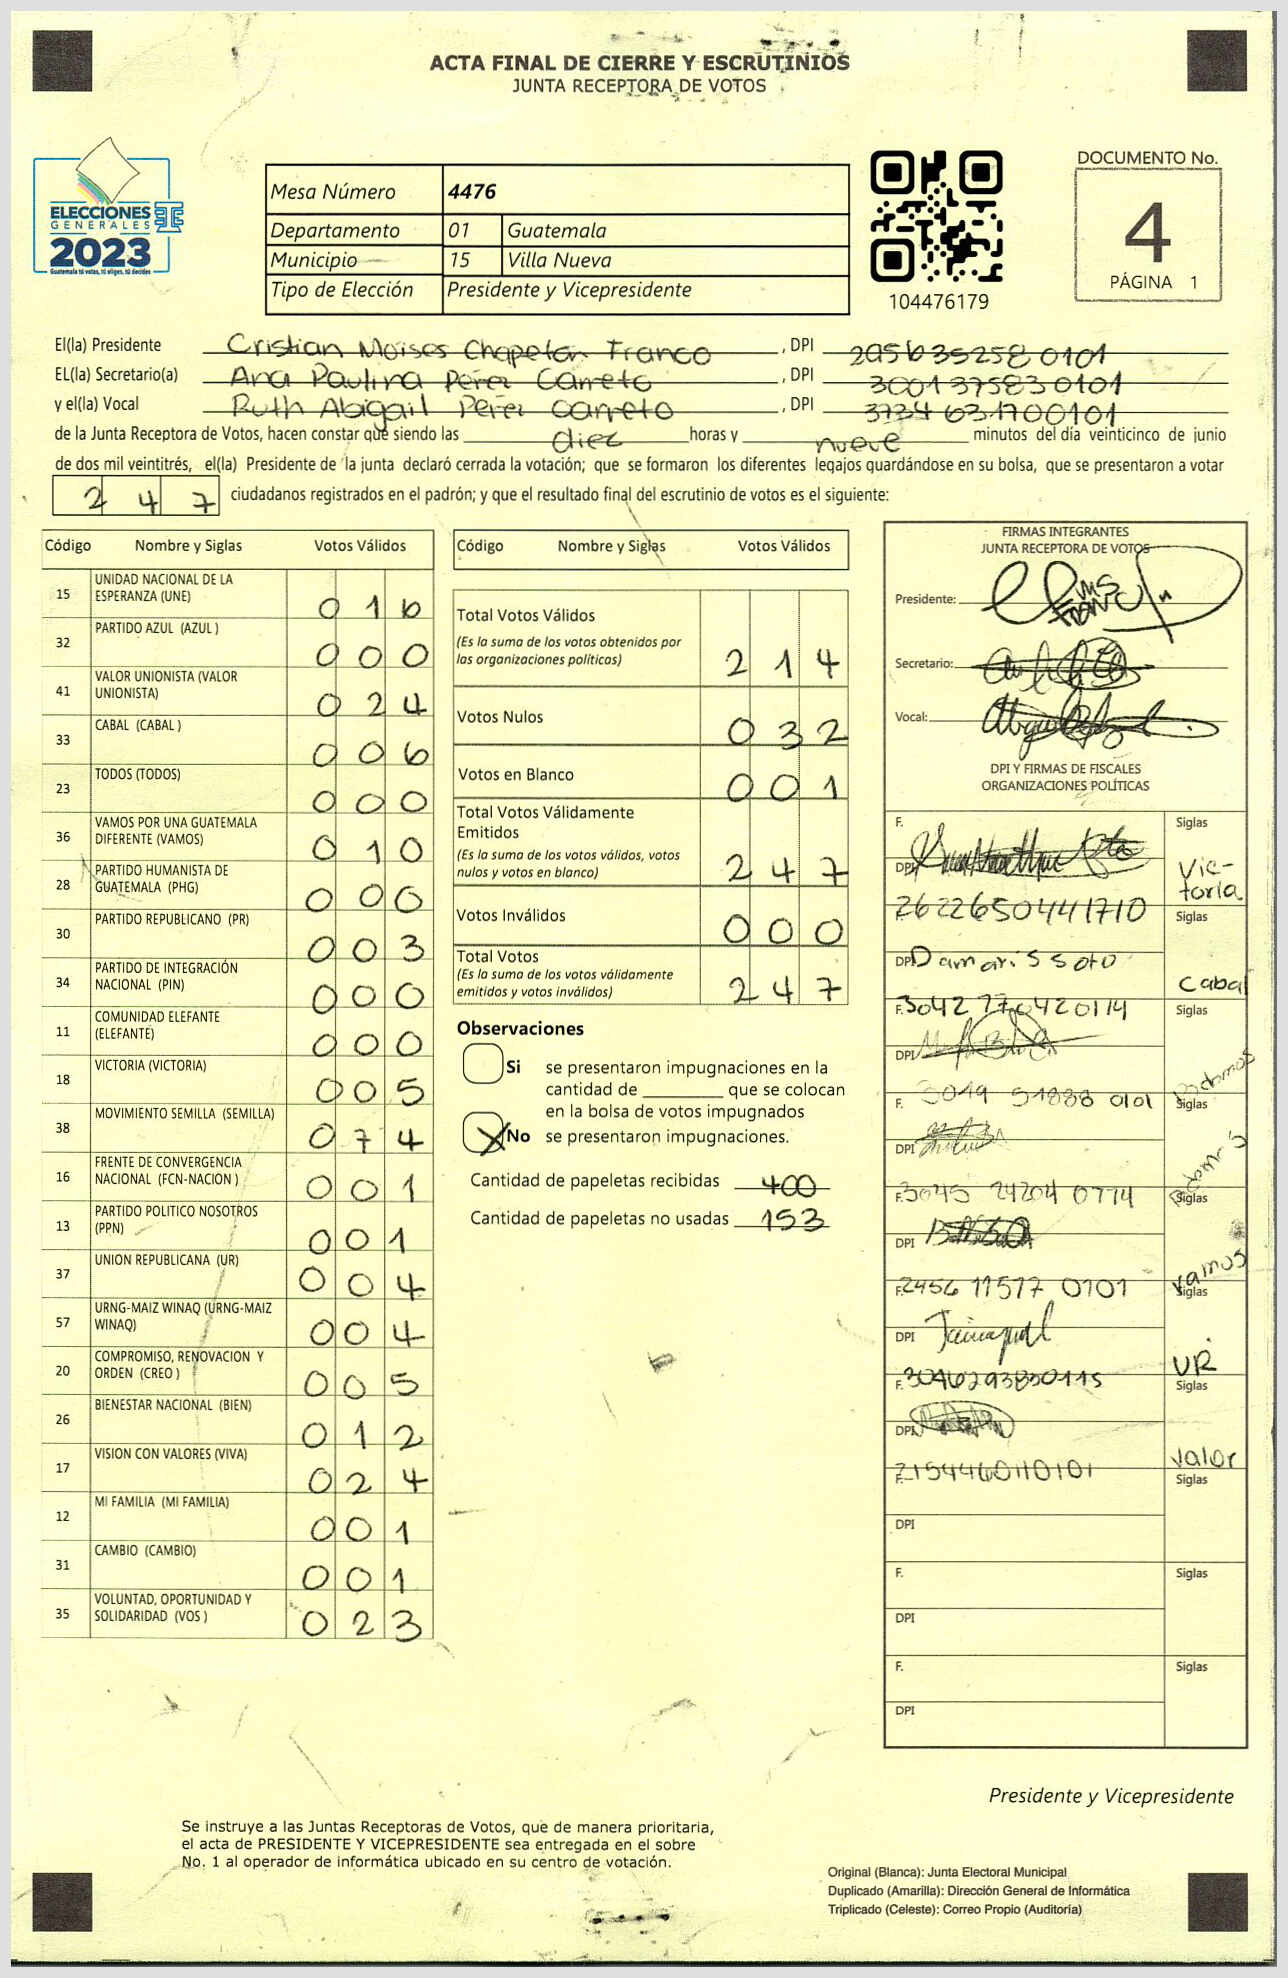 ACTA FINAL DE CIERRE Y ESCRUTINIOS
JUNTA RECEPTORA DE VOTOS
ELECCIONES
GENERALES
2023
Guatemala tú votas, tú eliges, tú decides
Mesa Número 4476
Departamento 01 Guatemala
Municipio 15 Villa Nueva
Tipo de Elección Presidente y Vicepresidente
104476179
DOCUMENTO No.
4
PÁGINA 1
El(la) Presidente Cristian Moises Chapetan Franco, DPI 2956352580101
EL(la) Secretario(a) Ana Paulina Perez Carreto, DPI 3001375830101
y el(la) Vocal Ruth Abigail Perez Carreto, DPI 3734631700101
de la Junta Receptora de Votos, hacen constar que siendo las diez horas y nueve minutos del día veinticinco de junio
de dos mil veintitrés, el(la) Presidente de la junta declaró cerrada la votación; que se formaron los diferentes legajos guardándose en su bolsa, que se presentaron a votar
247 ciudadanos registrados en el padrón; y que el resultado final del escrutinio de votos es el siguiente:
Código Nombre y Siglas Votos Válidos
15 UNIDAD NACIONAL DE LA ESPERANZA (UNE) 016
32 PARTIDO AZUL (AZUL ) 000
41 VALOR UNIONISTA (VALOR UNIONISTA) 024
33 CABAL (CABAL ) 006
23 TODOS (TODOS) 000
36 VAMOS POR UNA GUATEMALA DIFERENTE (VAMOS) 010
28 PARTIDO HUMANISTA DE GUATEMALA (PHG) 000
30 PARTIDO REPUBLICANO (PR) 003
34 PARTIDO DE INTEGRACIÓN NACIONAL (PIN) 000
11 COMUNIDAD ELEFANTE (ELEFANTE) 000
18 VICTORIA (VICTORIA) 005
38 MOVIMIENTO SEMILLA (SEMILLA) 074
16 FRENTE DE CONVERGENCIA NACIONAL (FCN-NACION ) 001
13 PARTIDO POLITICO NOSOTROS (PPN) 001
37 UNION REPUBLICANA (UR) 004
57 URNG-MAIZ WINAQ (URNG-MAIZ WINAQ) 004
20 COMPROMISO, RENOVACION Y ORDEN (CREO ) 005
26 BIENESTAR NACIONAL (BIEN) 012
17 VISION CON VALORES (VIVA) 024
12 MI FAMILIA (MI FAMILIA) 001
31 CAMBIO (CAMBIO) 001
35 VOLUNTAD, OPORTUNIDAD Y SOLIDARIDAD (VOS ) 023
Código Nombre y Siglas Votos Válidos
Total Votos Válidos
(Es la suma de los votos obtenidos por
las organizaciones políticas) 214
Votos Nulos 032
Votos en Blanco 001
Total Votos Válidamente
Emitidos
(Es la suma de los votos válidos, votos
nulos y votos en blanco) 247
Votos Inválidos 000
Total Votos
(Es la suma de los votos válidamente
emitidos y votos inválidos) 247
Observaciones
Si se presentaron impugnaciones en la
cantidad de ________ que se colocan
en la bolsa de votos impugnados
X No se presentaron impugnaciones.
Cantidad de papeletas recibidas 400
Cantidad de papeletas no usadas 153
FIRMAS INTEGRANTES
JUNTA RECEPTORA DE VOTOS
Presidente:
Secretario:
Vocal:
DPI Y FIRMAS DE FISCALES
ORGANIZACIONES POLÍTICAS
F. Siglas
DPI Victoria
2622650441710
F. Siglas
DPI Damaris Soto Cabal
F. 3042770420114 Siglas
DPI Podemos
F. 3019 51888 0101 Siglas
DPI Podemos
F. 3045 24204 0774 Siglas
DPI Vamos
F. 2456 11577 0101 Siglas
DPI UR
F. 3046293830115 Siglas
DPI Valor
F. 2154460110101 Siglas
DPI
F. Siglas
DPI
F. Siglas
DPI
Presidente y Vicepresidente
Se instruye a las Juntas Receptoras de Votos, que de manera prioritaria,
el acta de PRESIDENTE Y VICEPRESIDENTE sea entregada en el sobre
No. 1 al operador de informática ubicado en su centro de votación.
Original (Blanca): Junta Electoral Municipal
Duplicado (Amarilla): Dirección General de Informática
Triplicado (Celeste): Correo Propio (Auditoría)